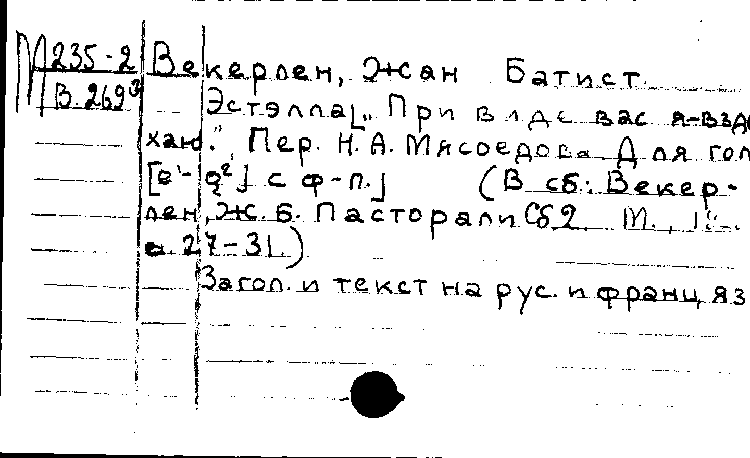 М 235-2 Векерлен, Жан Батист
В.269³ Эстэлла[„При виде вас я-взды
хаю." Пер. Н. А. Мясоедова. Для гол.
[e¹-g²] с ф-п.] (В сб.: Векер-
лен, Ж. Б. Пасторали Сб 2. М.,
с. 27-31.)
Загол. и текст на рус. и франц яз